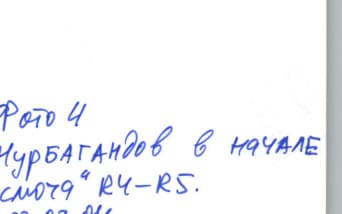 Фото 4
Нурбагандов в начале
смоча" R4-R5.